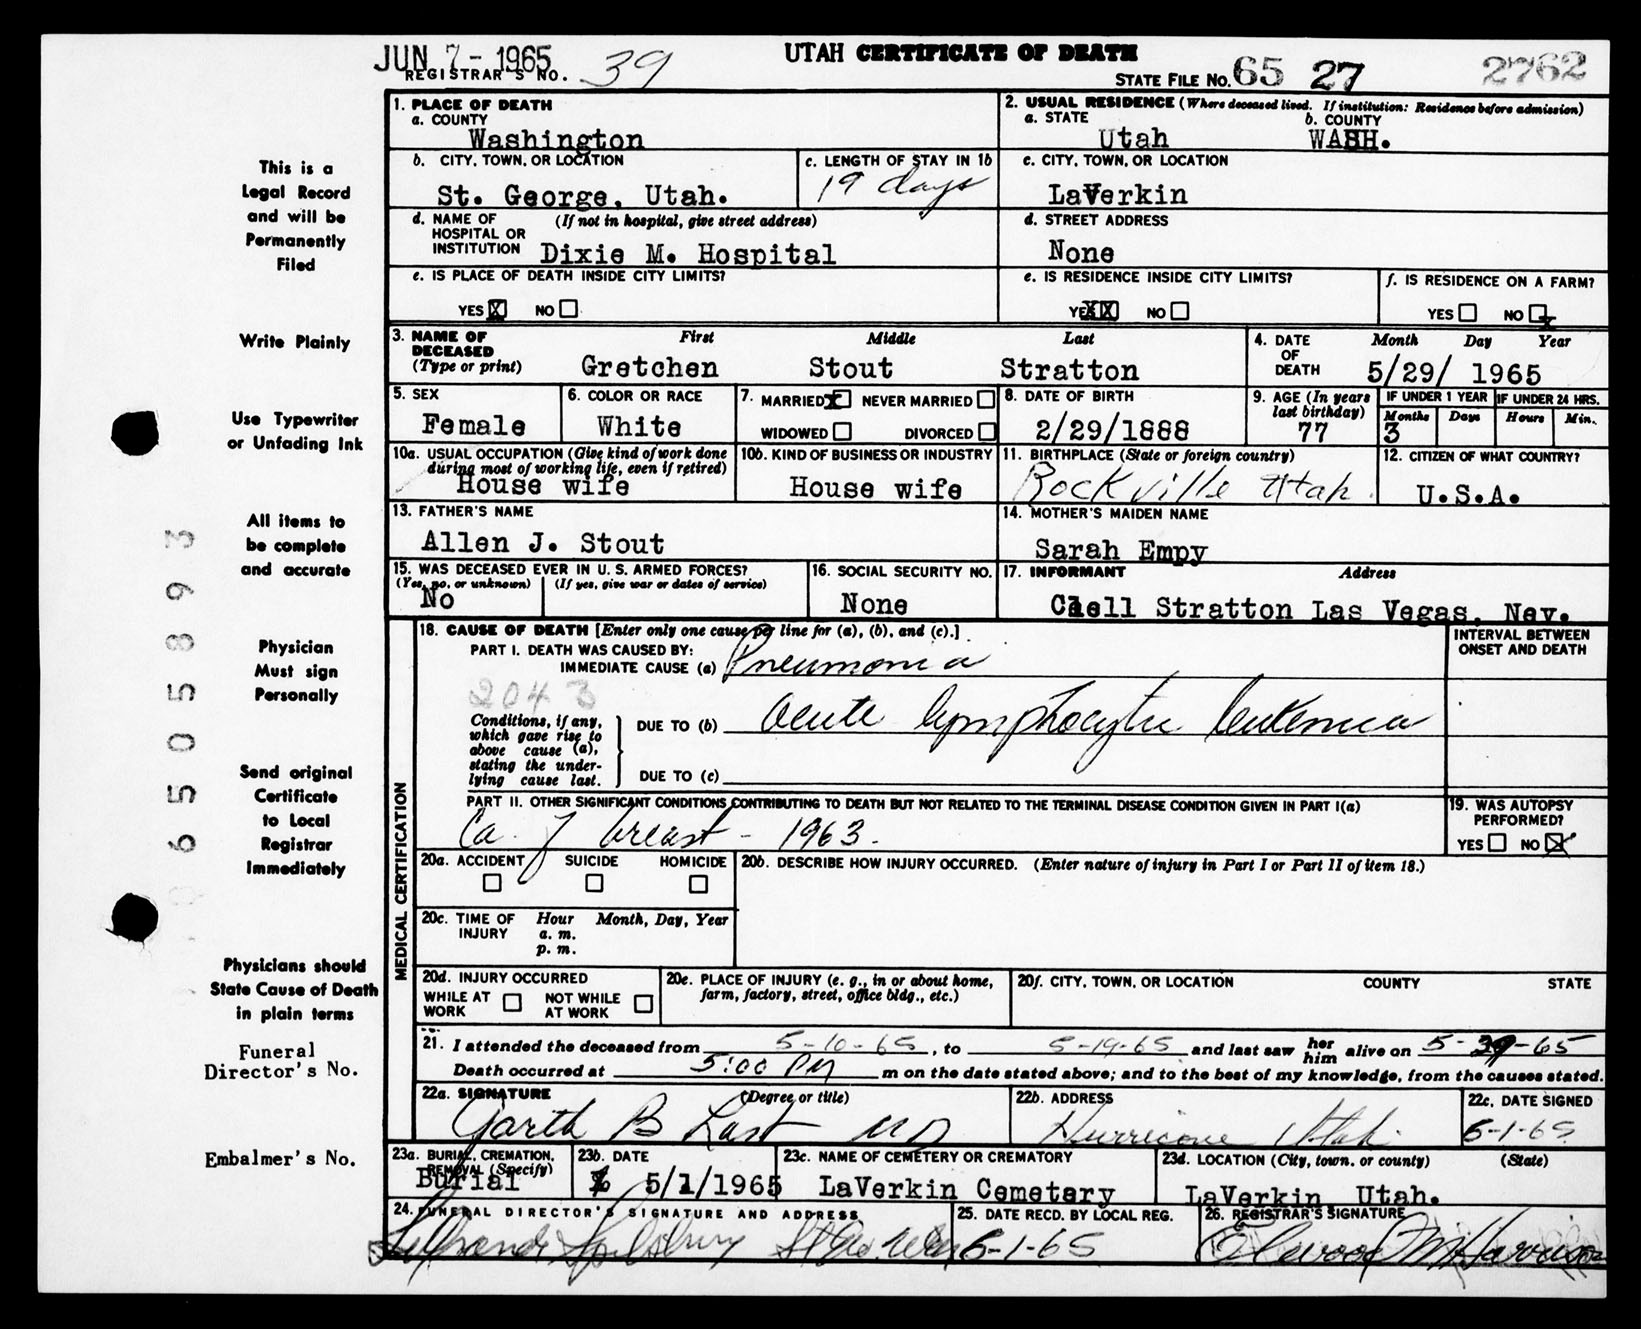 JUN 7 - 1965
REGISTRAR'S NO. 39
UTAH CERTIFICATE OF DEATH
STATE FILE NO. 65 27 2762
This is a
Legal Record
and will be
Permanently
Filed
Write Plainly
Use Typewriter
or Unfading Ink
All items to
be complete
and accurate
Physician
Must sign
Personally
Send original
Certificate
to Local
Registrar
Immediately
Physicians should
State Cause of Death
in plain terms
Funeral
Director's No.
Embalmer's No.
650 5893
1. PLACE OF DEATH
a. COUNTY
Washington
2. USUAL RESIDENCE (Where deceased lived. If institution: Residence before admission)
a. STATE b. COUNTY
Utah WASH.
b. CITY, TOWN, OR LOCATION
St. George, Utah.
c. LENGTH OF STAY IN 1b
19 days
c. CITY, TOWN, OR LOCATION
LaVerkin
d. NAME OF (If not in hospital, give street address)
HOSPITAL OR
INSTITUTION Dixie M. Hospital
d. STREET ADDRESS
None
e. IS PLACE OF DEATH INSIDE CITY LIMITS?
YES X NO
e. IS RESIDENCE INSIDE CITY LIMITS?
YES XX NO
f. IS RESIDENCE ON A FARM?
YES NO X
3. NAME OF First Middle Last
DECEASED
(Type or print) Gretchen Stout Stratton
4. DATE Month Day Year
OF
DEATH 5/29/ 1965
5. SEX
Female
6. COLOR OR RACE
White
7. MARRIED X NEVER MARRIED
WIDOWED DIVORCED
8. DATE OF BIRTH
2/29/1888
9. AGE (In years
last birthday)
77
IF UNDER 1 YEAR IF UNDER 24 HRS.
Months Days Hours Min.
3
10a. USUAL OCCUPATION (Give kind of work done
during most of working life, even if retired)
House wife
10b. KIND OF BUSINESS OR INDUSTRY
House wife
11. BIRTHPLACE (State or foreign country)
Rockville Utah.
12. CITIZEN OF WHAT COUNTRY?
U.S.A.
13. FATHER'S NAME
Allen J. Stout
14. MOTHER'S MAIDEN NAME
Sarah Empy
15. WAS DECEASED EVER IN U. S. ARMED FORCES?
(Yes, no, or unknown) (If yes, give war or dates of service)
No
16. SOCIAL SECURITY NO.
None
17. INFORMANT Address
Stratton Las Vegas, Nev.
MEDICAL CERTIFICATION
18. CAUSE OF DEATH [Enter only one cause per line for (a), (b), and (c).]
PART I. DEATH WAS CAUSED BY:
IMMEDIATE CAUSE (a) Pneumonia
INTERVAL BETWEEN
ONSET AND DEATH
2043
Conditions, if any,
which gave rise to
above cause (a),
stating the under-
lying cause last.
DUE TO (b) acute lymphocytic leukemia
DUE TO (c)
PART II. OTHER SIGNIFICANT CONDITIONS CONTRIBUTING TO DEATH BUT NOT RELATED TO THE TERMINAL DISEASE CONDITION GIVEN IN PART I(a)
Ca. of breast - 1963.
19. WAS AUTOPSY
PERFORMED?
YES NO X
20a. ACCIDENT SUICIDE HOMICIDE
20b. DESCRIBE HOW INJURY OCCURRED. (Enter nature of injury in Part I or Part II of item 18.)
20c. TIME OF Hour Month, Day, Year
INJURY a. m.
p. m.
20d. INJURY OCCURRED
WHILE AT NOT WHILE
WORK AT WORK
20e. PLACE OF INJURY (e. g., in or about home,
farm, factory, street, office bldg., etc.)
20f. CITY, TOWN, OR LOCATION COUNTY STATE
21. I attended the deceased from 5-10-65, to 5-19-65 and last saw her him alive on 5-29-65
Death occurred at 5:00 PM m on the date stated above; and to the best of my knowledge, from the causes stated.
22a. SIGNATURE (Degree or title)
Garth B Last MD
22b. ADDRESS
Hurricane Utah.
22c. DATE SIGNED
6-1-65
23a. BURIAL, CREMATION,
REMOVAL (Specify)
Burial
23b. DATE
5/1/1965
23c. NAME OF CEMETERY OR CREMATORY
LaVerkin Cemetery
23d. LOCATION (City, town, or county) (State)
LaVerkin Utah.
24. FUNERAL DIRECTOR'S SIGNATURE AND ADDRESS
25. DATE RECD. BY LOCAL REG.
6-1-65
26. REGISTRAR'S SIGNATURE